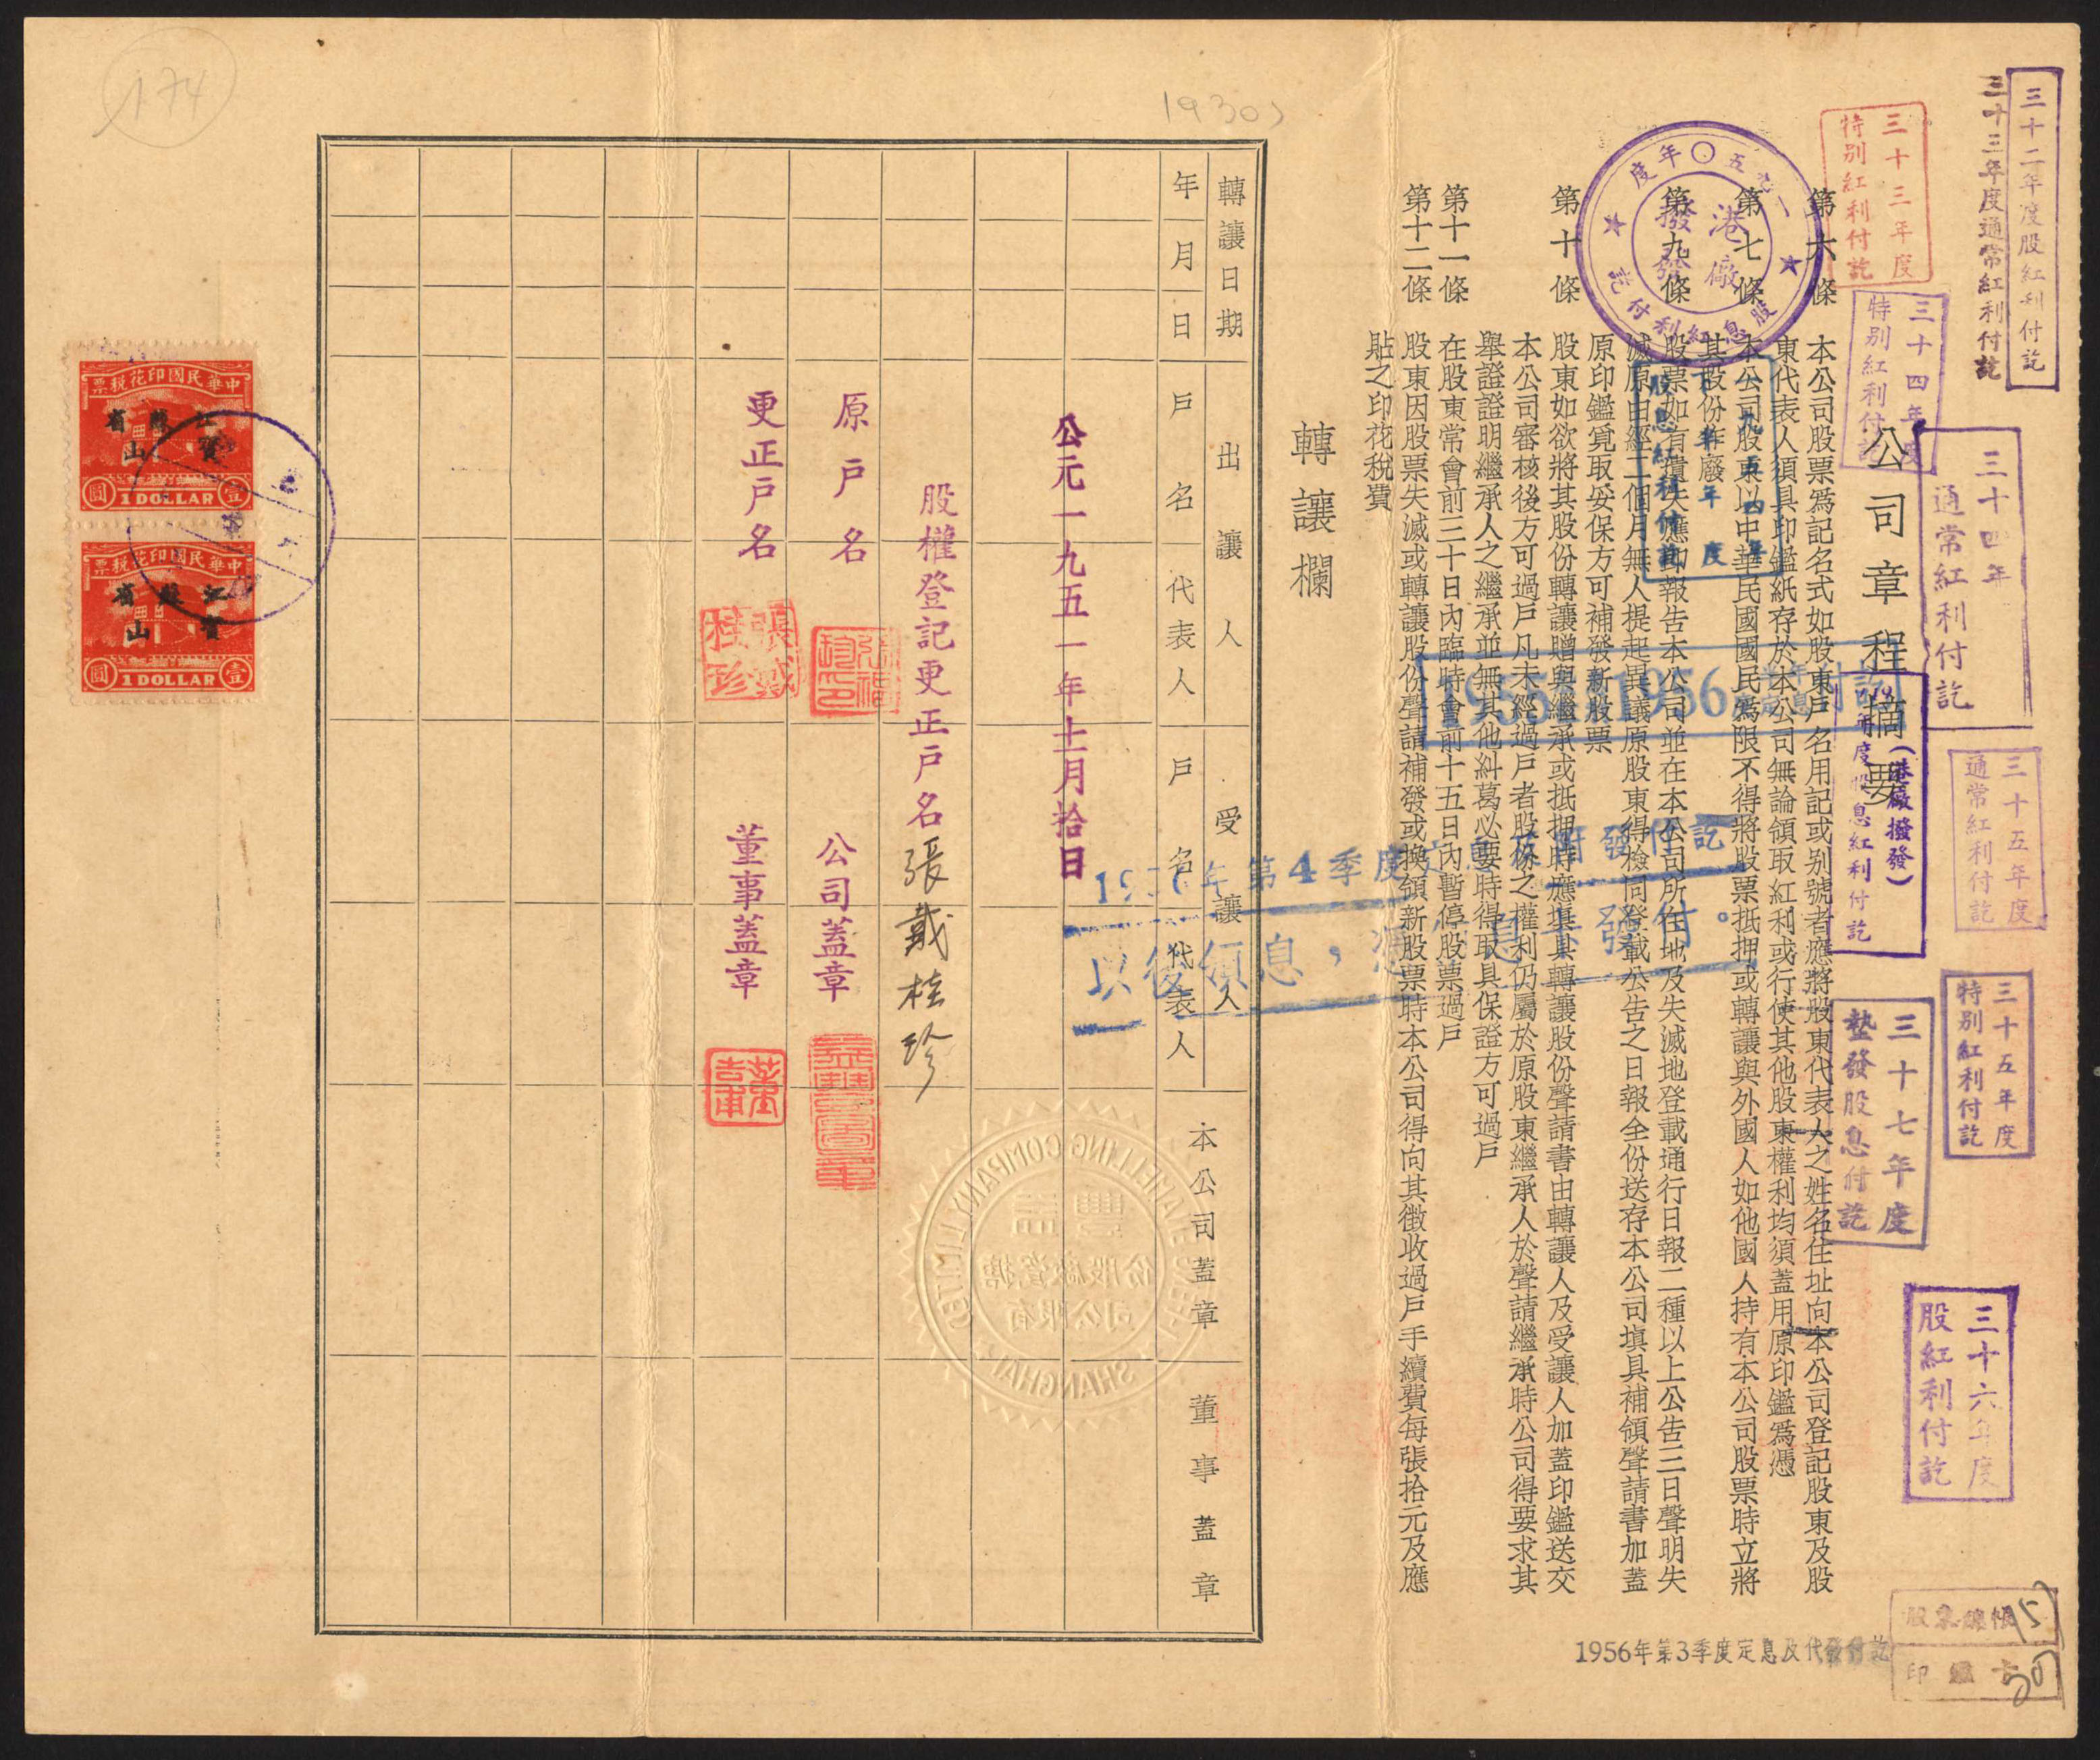 三十二年度股紅利付訖
三十三年度通常紅利付訖
三十三年度
特別紅利付訖
三十四年度
特別紅利付訖
三十四年
通常紅利付訖
三十五年度
通常紅利付訖
三十五年度
特別紅利付訖
三十七年度
墊發股息付訖
三十六年度
股紅利付訖
(港廠撥發)
年度股息紅利付訖
一九五〇年度
港廠
撥發
股息紅利付訖
一九五四年
年度
股息紅利付訖
公司章程摘要
第六條
本公司股票爲記名式如股東戶名用記或別號者應將股東代表人之姓名住址向本公司登記股東及股
東代表人須具印鑑紙存於本公司無論領取紅利或行使其他股東權利均須蓋用原印鑑爲憑
第七條
本公司股東以中華民國國民爲限不得將股票抵押或轉讓與外國人如他國人持有本公司股票時立將
其股份作廢
第九條
股票如有遺失應卽報告本公司並在本公司所在地及失滅地登載通行日報二種以上公告三日聲明失
滅原由經二個月無人提起異議原股東得檢同登載公告之日報全份送存本公司填具補領聲請書加蓋
原印鑑覓取妥保方可補發新股票
第十條
股東如欲將其股份轉讓贈與繼承或抵押時應填具轉讓股份聲請書由轉讓人及受讓人加蓋印鑑送交
本公司審核後方可過戶凡未經過戶者股份之權利仍屬於原股東繼承人於聲請繼承時公司得要求其
舉證證明繼承人之繼承並無其他糾葛必要時得取具保證方可過戶
第十一條
在股東常會前三十日內臨時會前十五日內暫停股票過戶
第十二條
股東因股票失滅或轉讓股份聲請補發或換領新股票時本公司得向其徵收過戶手續費每張拾元及應
貼之印花稅費
1956
付訖
年第4季度
付訖
以後領息，憑
息
發付。
1956年第3季度定息及代發付訖
轉讓欄
轉讓日期
年月日
出讓人
戶名
代表人
受讓人
戶名
代表人
本公司蓋章
董事蓋章
公元一九五一年十一月拾日
股權登記更正戶名張戴桂珍
原戶名
公司蓋章
更正戶名
董事蓋章
張戴
桂珍
董
吉甫
ENAMELLING COMPANY LIMITED
SHANGHAI
益豐
搪瓷廠股份
有限公司
1930s
174
中華民國印花稅票
江蘇省
寶山
壹
1 DOLLAR
圓
中華民國印花稅票
江蘇省
寶山
壹
1 DOLLAR
圓
15
50